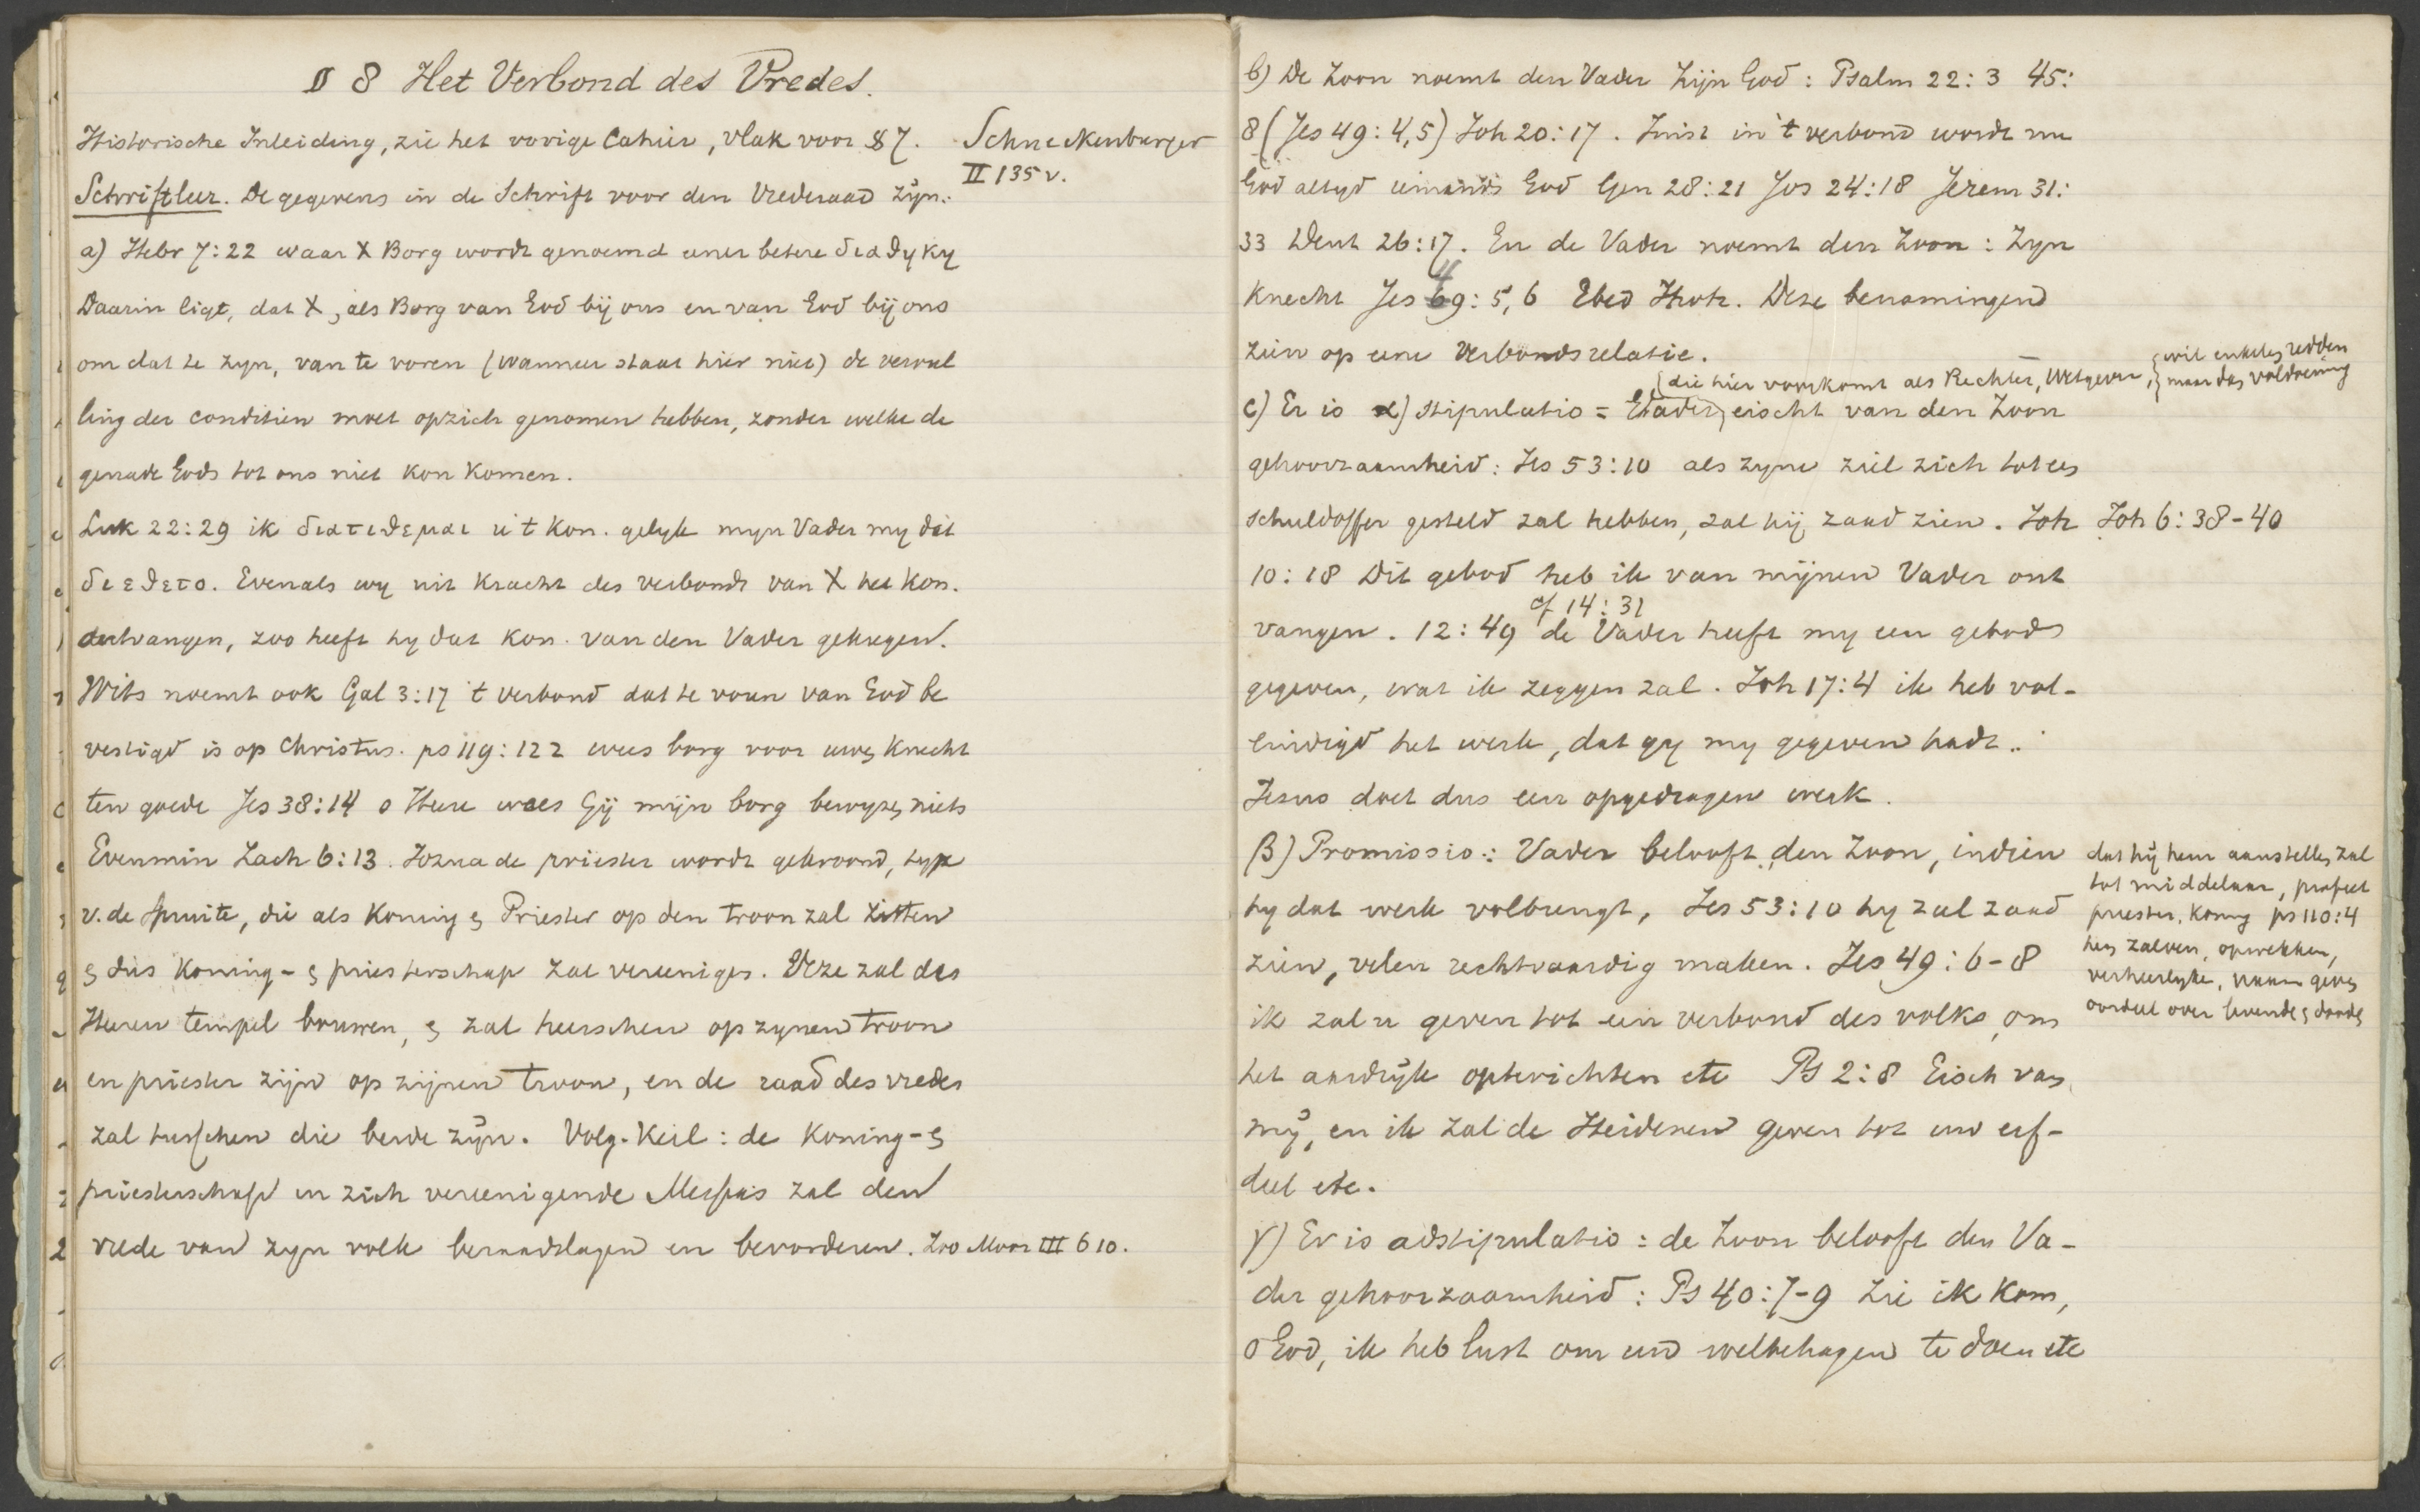 § 8 Het Verbond des Vredes.
Historische Inleiding, zie het vorige Cahier, vlak voor § 7.
Schneckenburger
II 135 v.
Schriftleer. De gegevens in de Schrift voor den Vrederaad zijn:
a) Hebr 7:22 waar X Borg wordt genoemd eener betere διαθηκη
Daarin ligt, dat X, als Borg van God bij ons en van God bij ons
om dat te zyn, van te voren (wanneer staat hier niet) de vervul
ling der conditien moet op zich genomen hebben, zonder welke de
genade Gods tot ons niet kon komen.
Luk 22:29 ik διατιθεμαι u 't Kon. gelyk myn Vader my dat
διεθετο. Evenals wy uit kracht des verbonds van X het Kon.
ontvangen, zoo heeft hy dat Kon. van den Vader gekregen.
Wits noemt ook Gal 3:17 't verbond dat te voren van God be
vestigd is op Christus. ps 119:122 wees borg voor uwen knecht
ten goede Jes 38:14 o Heere wees Gij mijn borg bewyzen niets
Evenmin Zach 6:13. Jozua de priester wordt gekroond, type
v. de spruite, die als Koning en Priester op den troon zal zitten
en dus Koning- en priesterschap zal vereenigen. Deze zal des
Heeren tempel bouwen, en zal heerschen op zynen troon
en priester zijn op zijnen troon, en de raad des vredes
zal tusschen die beide zijn. Volg. Keil: de Koning- en
priesterschap in zich vereenigende Messias zal den
vrede van zyn volk beraadslagen en bevorderen. Zoo Moor III 610.
b) De Zoon noemt den Vader Zijn God: Psalm 22:3 45:
8 (Jes 49:4,5) Joh 20:17. Juist in 't verbond wordt nu
God altyd iemands God Gen 28:21 Jos 24:18 Jerem 31:
33 Deut 26:17. En de Vader noemt den Zoon: Zyn
Knecht Jes 49:5,6 Ebed Jhvh. Deze benamingen
zien op eene Verbondsrelatie.
die hier voorkomt als Rechter, Wetgever,
wil enkelen redden
maar dan voldoening
c) Er is α) stipulatio = Vader eischt van den Zoon
gehoorzaamheid: Jes 53:10 als zyne ziel zich tot een
schuldoffer gesteld zal hebben, zal hij zaad zien. Joh
Joh 6:38-40
10:18 Dit gebod heb ik van mijnen Vader ont
cf 14:31
vangen. 12:49 de Vader heeft my een gebod
gegeven, wat ik zeggen zal. Joh 17:4 ik heb vol-
eindigd het werk, dat gy my gegeven hadt..
Jesus doet dus een opgedragen werk.
β) Promissio: Vader belooft den Zoon, indien
hy dat werk volbrengt, Jes 53:10 hy zal zaad
zien, velen rechtvaardig maken. Jes 49:6-8
ik zal u geven tot een verbond des volks, om
het aardrijk opterichten etc Ps 2:8 Eisch van
mij, en ik zal de Heidenen geven tot uw erf-
deel etc.
dat hij hem aanstellen zal
tot middelaar, profeet
priester, koning ps 110:4
hem zalven, opwekken,
verheerlyken, naam geven
oordeel over levenden en dooden
γ) Er is adstipulatio: de Zoon belooft den Va-
der gehoorzaamheid: Ps 40:7-9 Zie ik kom,
o God, ik heb lust om uw welbehagen te doen etc